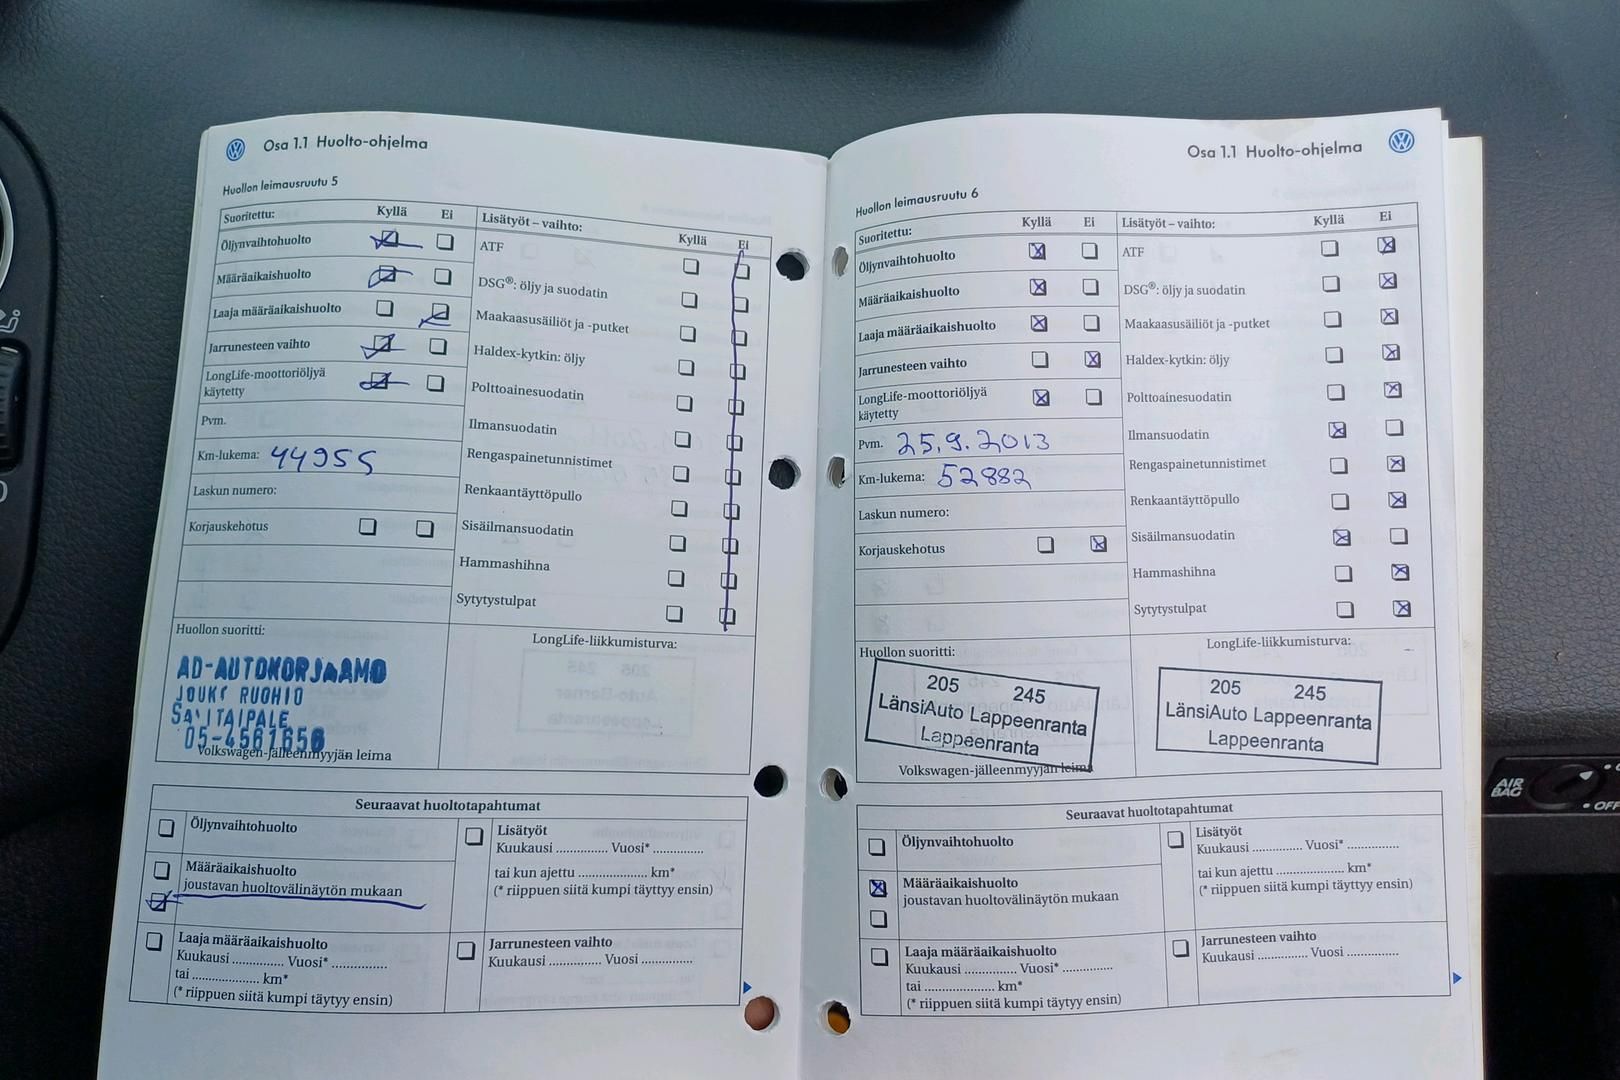 Osa 1.1 Huolto-ohjelma
Huollon leimausruutu 5
Suoritettu: Kyllä Ei
Öljynvaihtohuolto
Määräaikaishuolto
Laaja määräaikaishuolto
Jarrunesteen vaihto
LongLife-moottoriöljyä
käytetty
Pvm.
Km-lukema: 44955
Laskun numero:
Korjauskehotus
Lisätyöt – vaihto: Kyllä Ei
ATF
DSG®: öljy ja suodatin
Maakaasusäiliöt ja -putket
Haldex-kytkin: öljy
Polttoainesuodatin
Ilmansuodatin
Rengaspainetunnistimet
Renkaantäyttöpullo
Sisäilmansuodatin
Hammashihna
Sytytystulpat
Huollon suoritti:
AD-AUTOKORJAAMO
JOUKO RUOHIO
SAVITAIPALE
05-4561656
Volkswagen-jälleenmyyjän leima
LongLife-liikkumisturva:
Seuraavat huoltotapahtumat
Öljynvaihtohuolto
Määräaikaishuolto
joustavan huoltovälinäytön mukaan
Laaja määräaikaishuolto
Kuukausi .............. Vuosi* ..............
tai .................. km*
(* riippuen siitä kumpi täytyy ensin)
Lisätyöt
Kuukausi .............. Vuosi* ..............
tai kun ajettu .................... km*
(* riippuen siitä kumpi täyttyy ensin)
Jarrunesteen vaihto
Kuukausi .............. Vuosi ..............
Osa 1.1 Huolto-ohjelma
Huollon leimausruutu 6
Suoritettu: Kyllä Ei
Öljynvaihtohuolto
Määräaikaishuolto
Laaja määräaikaishuolto
Jarrunesteen vaihto
LongLife-moottoriöljyä
käytetty
Pvm. 25.9.2013
Km-lukema: 52882
Laskun numero:
Korjauskehotus
Lisätyöt – vaihto: Kyllä Ei
ATF
DSG®: öljy ja suodatin
Maakaasusäiliöt ja -putket
Haldex-kytkin: öljy
Polttoainesuodatin
Ilmansuodatin
Rengaspainetunnistimet
Renkaantäyttöpullo
Sisäilmansuodatin
Hammashihna
Sytytystulpat
Huollon suoritti:
205 245
LänsiAuto Lappeenranta
Lappeenranta
Volkswagen-jälleenmyyjän leima
LongLife-liikkumisturva:
205 245
LänsiAuto Lappeenranta
Lappeenranta
Seuraavat huoltotapahtumat
Öljynvaihtohuolto
Määräaikaishuolto
joustavan huoltovälinäytön mukaan
Laaja määräaikaishuolto
Kuukausi .............. Vuosi* ..............
tai .................... km*
(* riippuen siitä kumpi täytyy ensin)
Lisätyöt
Kuukausi .............. Vuosi* ..............
tai kun ajettu .................... km*
(* riippuen siitä kumpi täyttyy ensin)
Jarrunesteen vaihto
Kuukausi .............. Vuosi ..............
AIR
BAG
OFF